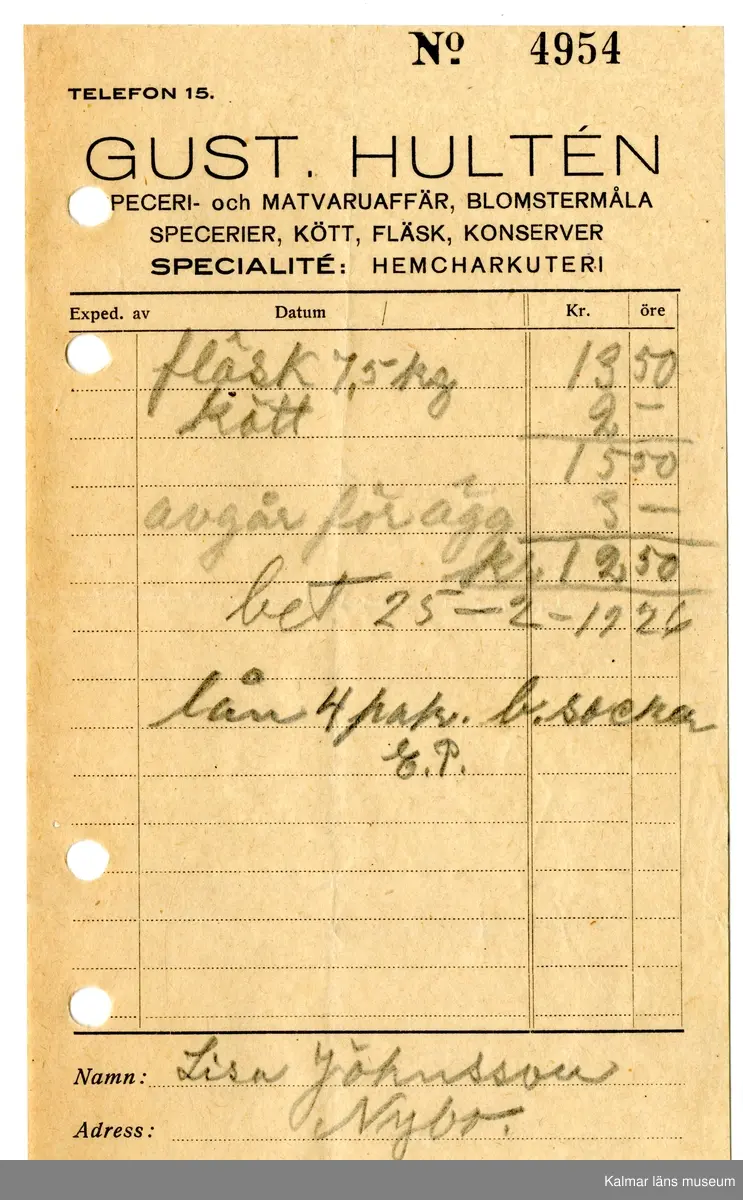 No 4954
TELEFON 15.
GUST. HULTÉN
PECERI- och MATVARUAFFÄR, BLOMSTERMÅLA
SPECERIER, KÖTT, FLÄSK, KONSERVER
SPECIALITÉ: HEMCHARKUTERI
Exped. av Datum / Kr. öre
fläsk 7,5 kg 13 50
kött 2 —
15 50
avgår för ägg 3 —
kr. 12 50
bet 25-2-1926
lån 4 pak. b. socker
E.P.
Namn: Lisa Johnsson
Adress: Nybo.
Kalmar läns museum